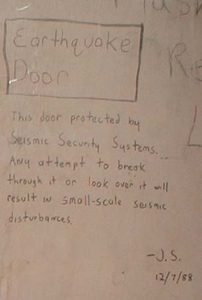 Earthquake
Door
This door protected by
Seismic Security Systems.
Any attempt to break
through it or look over it will
result in small-scale seismic
disturbances.
-J.S.
12/7/88